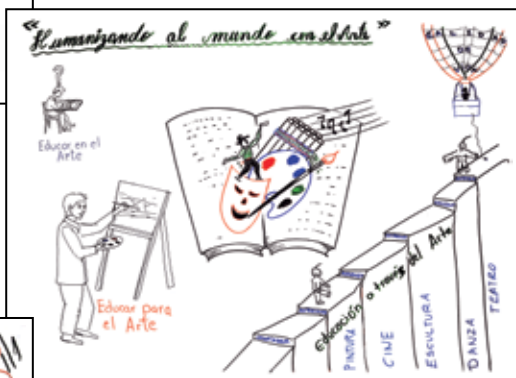 "Humanizando al mundo con el Arte"
Educar en el
Arte
Educar para
el Arte
Educación a través del Arte
PINTURA
CINE
ESCULTURA
DANZA
TEATRO